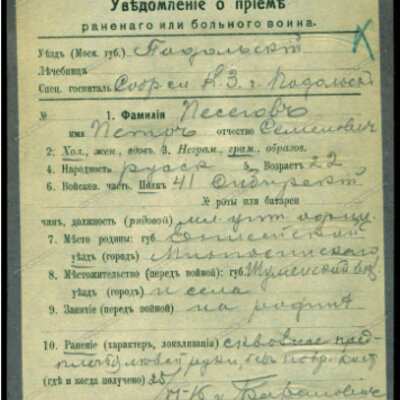 Увѣдомленіе о пріемѣ
раненаго или больного воина.
Уѣздъ (Моск. губ.) Подольскъ
Лѣчебница
Спец. госпиталь № 3 г. Подольск
№ 1. Фамилія Песеговъ
имя Петръ отчество Семеновичъ
2. Хол., жен., вдовъ. 3. Неграм., грам., образов.
4. Народность русск 5. Возрастъ 22
6. Войсков. часть. Полкъ 41 Сибирскій
№ роты или батареи
чинъ, должность (рядовой) мл. унт. офиц.
7. Мѣсто родины: губ. Енисейской
уѣздъ (городъ) Минусинскаго
8. Мѣстожительство (передъ войной): губ.
уѣздъ (городъ) и села
9. Занятіе (передъ войной) на родинѣ
10. Раненіе (характеръ, локализація) сквозное
лѣвой руки, безъ повр. кост
(гдѣ и когда получено) 25/